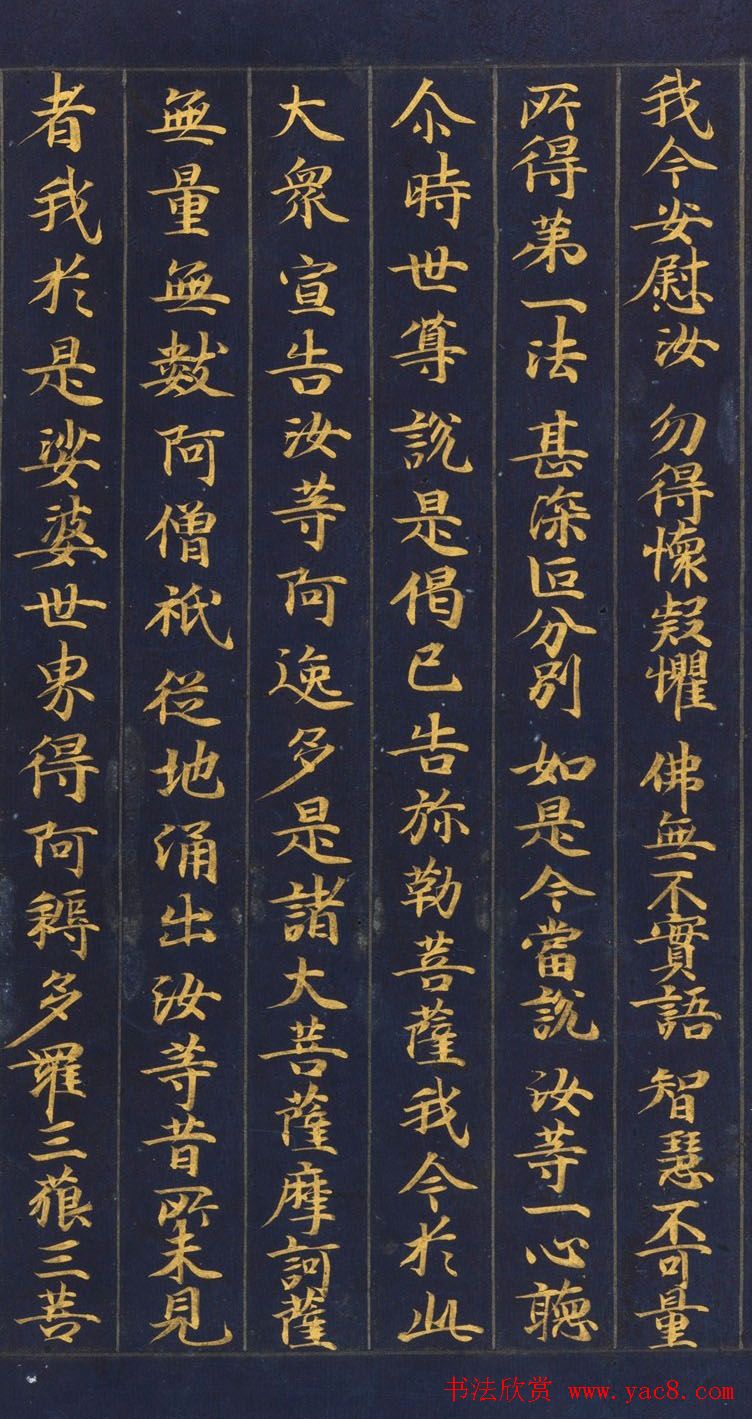 我今安慰汝 勿得懷疑懼 佛無不實語 智慧不可量
所得第一法 甚深叵分別 如是今當說 汝等一心聽
尒時世尊說是偈已告弥勒菩薩我今於此
大眾宣告汝等阿逸多是諸大菩薩摩訶薩
無量無數阿僧祇從地涌出汝等昔所未見
者我於是娑婆世界得阿耨多羅三藐三菩
书法欣赏 www.yac8.com